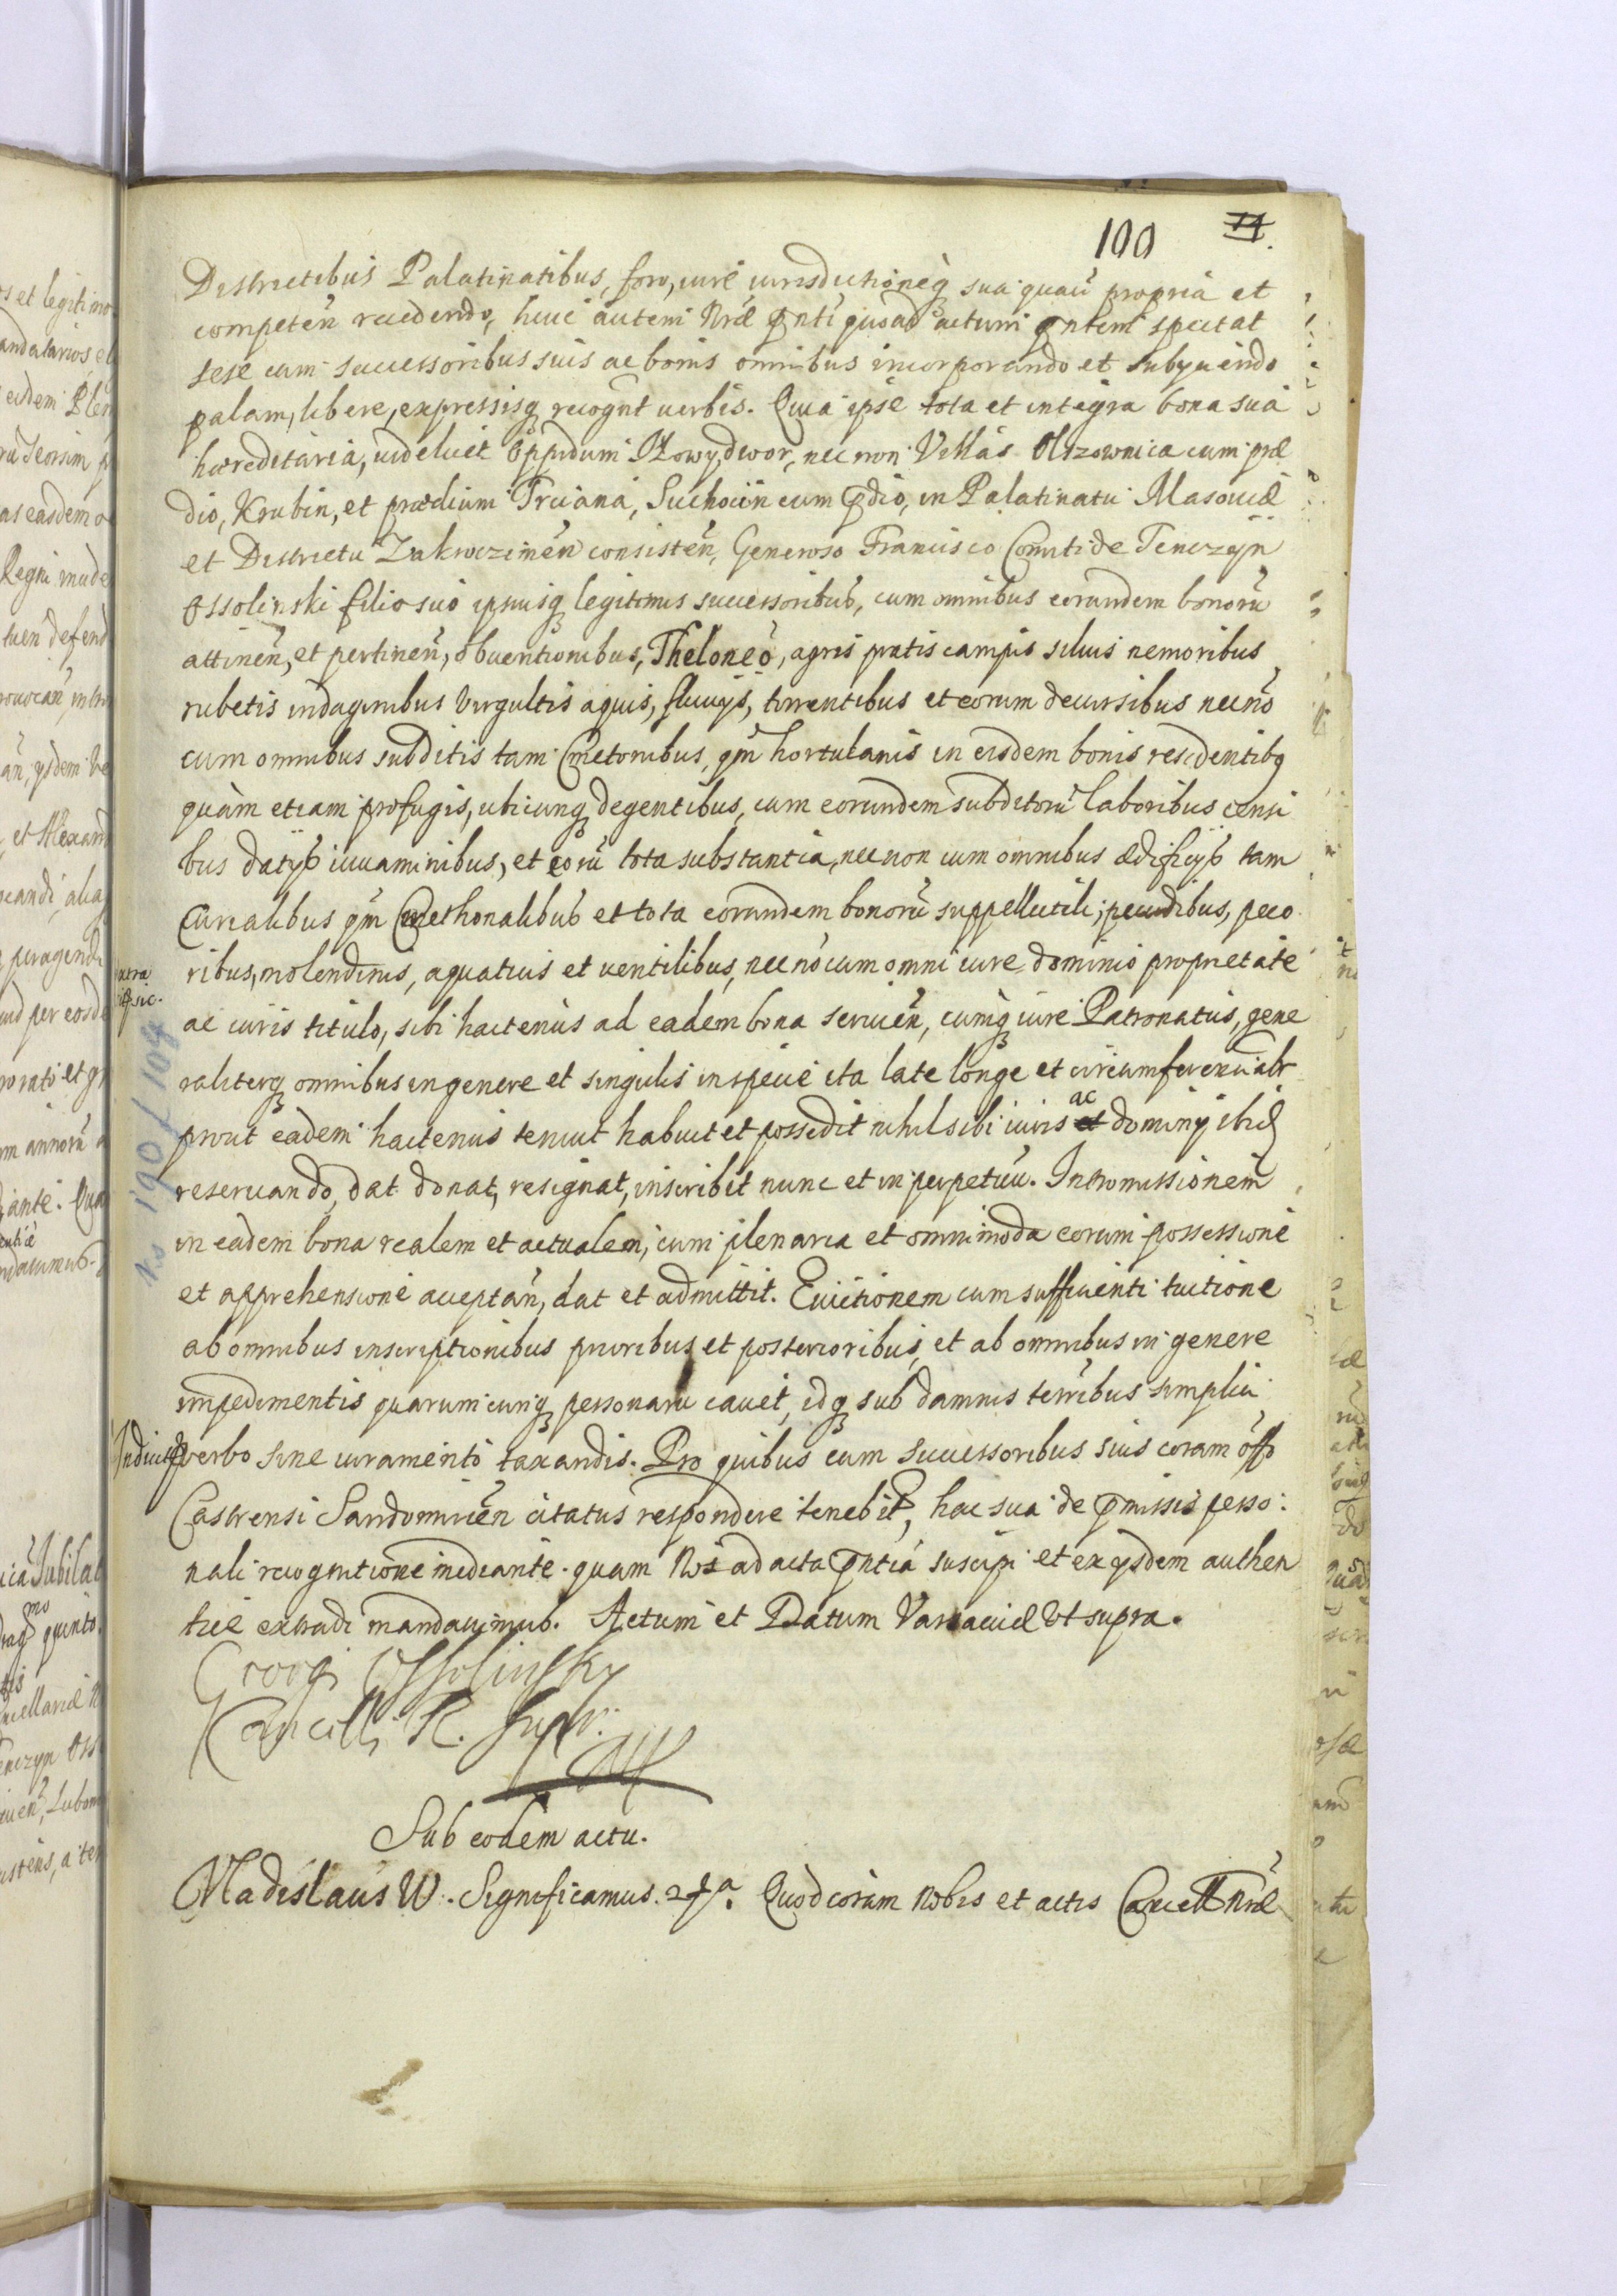 100 71.
Districtibus Palatinatibus, foro, iure iurisdictioneq̃ sua quauis propria et
competeñ recedendo, huic autem Nrae pñti quoad actum pñtem spectat
sese cum successoribus suis ac bonis omnibus incorporando et subyciendo
palam, libere, expressisq̃ recognt uerbis. Quia ipse tota et integra bona sua
haereditaria, uidelicet Oppidum Nowy dwor, nec non Villas Olszownica cum prae
dio, Krubin, et praedium Trciana, Suchocin cum pdio, in Palatinatu Masouiae
et Districtu Zakroczimeñ consisteñ, Generoso Francisco Comiti de Tenczyn
Ossolinski filio suo ipsiusq̃ legitimis successoribus, cum omnibus eorundem bonorũ
attineñ, et pertineñ, obuentionibus, Theloneo, agris pratis campis siluis nemoribus
rubetis indaginibus virgultis aquis, fluuijs, torrentibus et eorum decursibus necnõ
cum omnibus subditis tam Cmetonibus, qm̃ hortulanis in eisdem bonis residentibq
quàm etiam profugis, ubicunq̃ degentibus, cum eorundem subditorũ laboribus censi
bus datijs iuuaminibus, et eorũ tota substantia, nec non cum omnibus aedificijs tam
Curialibus qm̃ Cmethonalibus et tota eorundem bonorũ suppellectili; pecudibus, peco
ribus, molendinis, aquaticis et uentilibus, nec nõ cum omni iure dominio proprietate
ac iuris titulo, sibi hactenus ad eadem bona seruieñ, cumq̃ iure Patronatus, gene
raliterq̃ omnibus in genere et singulis in specie ita late longe et circumferencialr
ac
prout eadem hactenus tenuit habuit et possedit nihil sibi iuris et dominij ibid
reseruando, dat donat, resignat, inscribit nunc et in perpetuũ. Intromissionem
in eadem bona realem et actualem, cum plenaria et omnimoda eorum possessione
et apprehensione acceptañ, dat et admittit. Euictionem cum sufficienti tuitione
ab omnibus inscriptionibus prioribus et posterioribus, et ab omnibus in genere
impedimentis quarumcunq̃ personarũ cauet, idq̃ sub damnis terribus simplici
verbo sine iuramento taxandis. Pro quibus cum successoribus suis coram offo
Castrensi Sandomirieñ citatus respondere tenebit, hac sua de pmissis perso:
nali recognitione mediante. quam Nos ad acta pñtia suscipi et ex ijsdem authen
tice extradi mandauimus. Actum et Datum Varsauiae Ut supra.
Georgi Ossolinsky
Cancell: R. Supr:
Sub eodem actu.
Vladislaus W. Significamus. Quod coram Nobis et actis Cancell Nrae